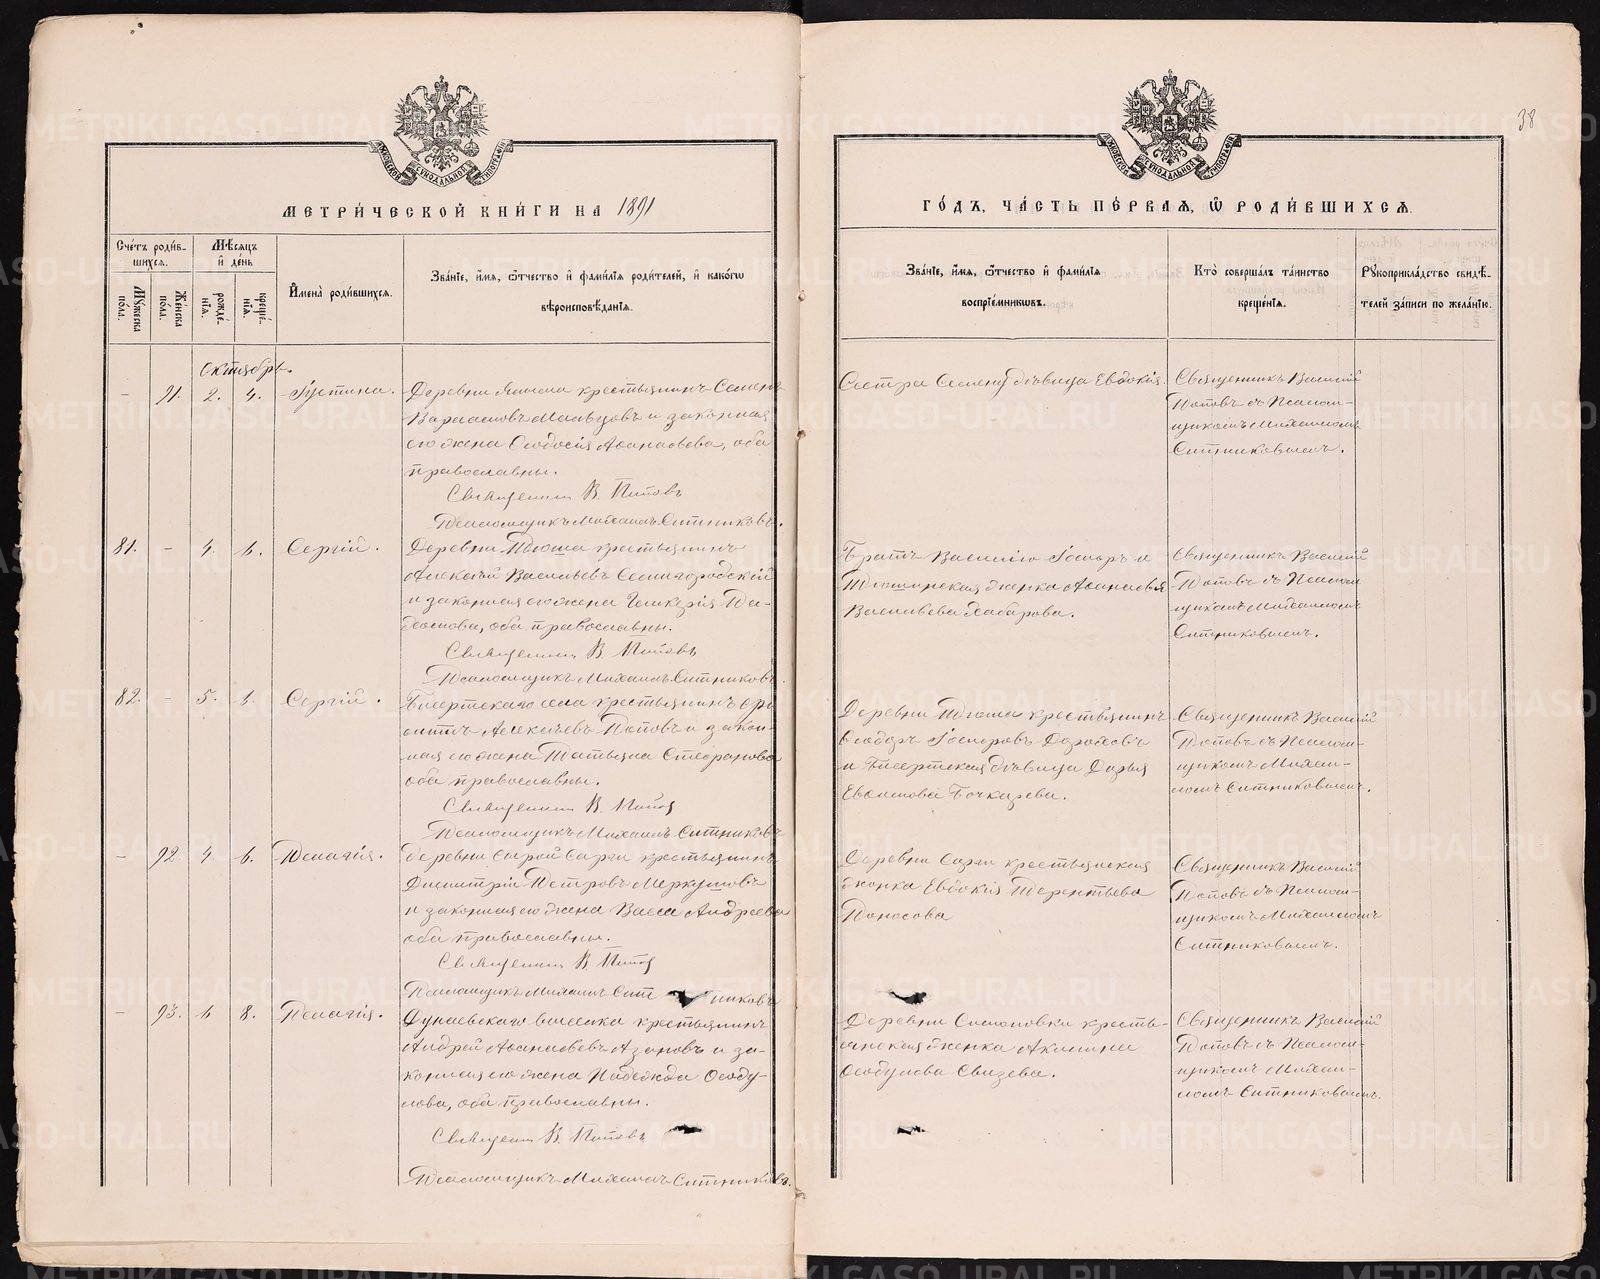 38
МОСКОВСКОЙ СѴНОДАЛЬНОЙ ТИПОГРАФІИ
МЕТРИ́ЧЕСКОЙ КНИ́ГИ НА 1891
Сче́тъ роди́в-
шихсѧ.
Мѣ́сѧцъ
и҆ де́нь
Мꙋ́жеска
по́ла.
Же́нска
по́ла.
рожде́-
нїѧ.
креще́-
нїѧ.
И҆мена̀ роди́вшихсѧ.
Зва́нїе, и҆́мѧ, ѻ҆́тчество и҆ фами́лїѧ роди́телей, и҆ како́гѡ
вѣроисповѣ́данїѧ.
Октябрь.
- 91. 2. 4. Іустина.
Деревни крестьянинъ Семенъ
Варлаамовъ Мальцовъ и законная
его жена Ѳеодосія Аѳанасьева, оба
православны.
Священникъ В. Поповъ
Псаломщикъ Михаилъ Ситниковъ.
81. - 4. 6. Сергій.
Деревни Тюша крестьянинъ
Алексѣй Васильевъ
и законная его жена Гликерія
оба православны.
Священникъ В. Поповъ
Псаломщикъ Михаилъ Ситниковъ.
82. - 5. 6. Сергій.
Бисертскаго села крестьянинъ
Алексѣевъ Поповъ и закон-
ная его жена Татьяна Стефанова
оба православны.
Священникъ В. Поповъ
Псаломщикъ Михаилъ Ситниковъ
- 92. 4. 6. Пелагія.
Деревни Сарги крестьянинъ
Димитрій Петровъ Меркушовъ
и законная его жена Васса Андреева
оба православны.
Священникъ В. Поповъ
Псаломщикъ Михаилъ Ситниковъ
- 93. 6 8. Пелагія.
Дунаевскаго выселка крестьянинъ
Андрей Аѳанасьевъ Азановъ и за-
конная его жена Надежда Ѳеоду-
лова, оба православны.
Священникъ В. Поповъ
Псаломщикъ Михаилъ Ситниковъ.
МОСКОВСКОЙ СѴНОДАЛЬНОЙ ТИПОГРАФІИ
ГО́ДЪ, ЧА́СТЬ ПЕ́РВАЯ, Ѡ҆ РОДИ́ВШИХСЯ.
Зва́нїе, и҆́мѧ, ѻ҆́тчество и҆ фами́лїѧ
воспрїе́мникѡвъ.
Кто̀ соверша́лъ та́инство
креще́нїѧ.
Рꙋкоприкла́дство свидѣ́-
телей за́писи по жела́нїю.
Сестра Семену дѣвица Евдокія.
Священникъ Василій
Поповъ съ Псалом-
щикомъ Михаиломъ
Ситниковымъ.
Братъ Василію и
женка
Васильева Хабарова.
Священникъ Василій
Поповъ съ Псалом
щикомъ Михаиломъ
Ситниковымъ.
Деревни Тюша крестьянинъ
Ѳеодоръ
и Бисертская дѣвица Дарья
Евѳимова Бочкарева.
Священникъ Василій
Поповъ съ Псалом-
щикомъ Михаи-
ломъ Ситниковымъ.
Деревни Сарги крестьянская
женка Евдокія Терентьева
Поносова
Священникъ Василій
Поповъ съ Псалом-
щикомъ Михаиломъ
Ситниковымъ.
Деревни Симоновки кресть-
янская женка Акилина
Ѳеодулова
Священникъ Василій
Поповъ съ Псалом-
щикомъ Михаи-
ломъ Ситниковымъ.
METRIKI.GASO-URAL.RU